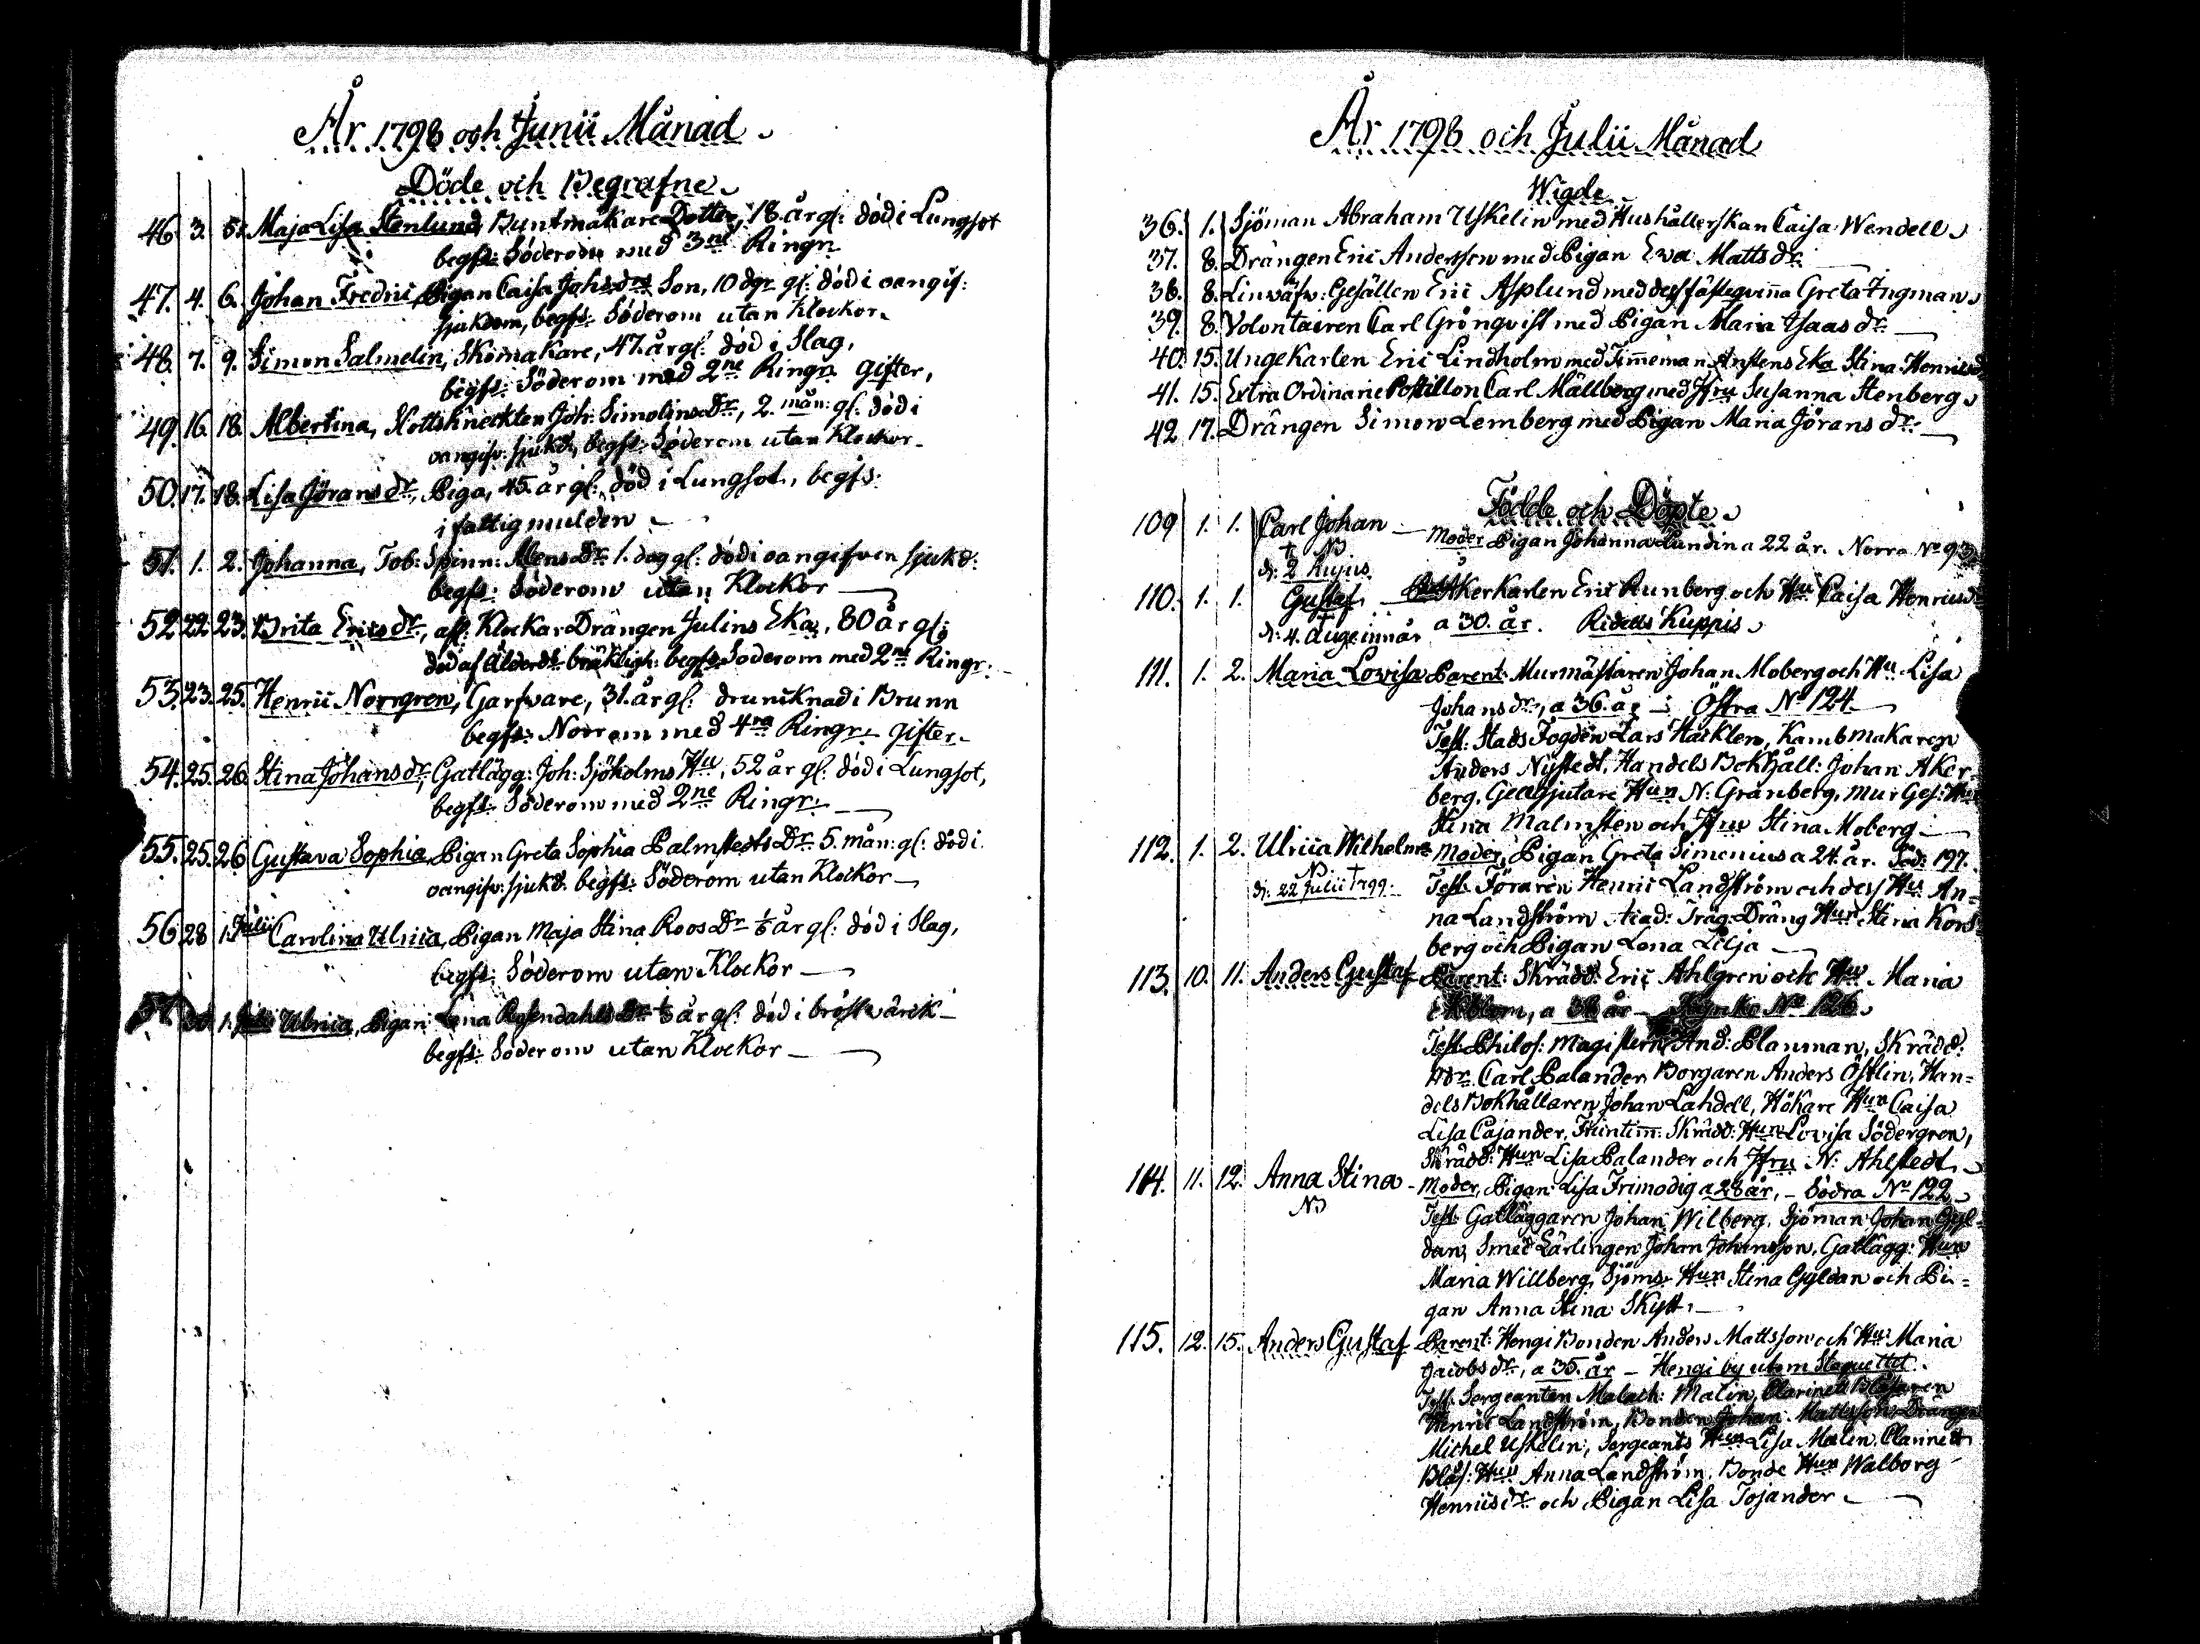 År 1798 och Junii Månad
Döde och Begrafne
46. 3. 5. Maja Lisa Stenlund, Buntmakare Dotter, 18. år gl: död i Lungsot
begfs: Söderom med 3ne Ringr
47. 4. 6. Johan Fredric, Pigan Caisa Johsdrs Son, 10 dgr gl: död i oangif:
sjukdom, begfs: Söderom utan Klockor
48. 7. 9. Simon Salmelin, Skomakare, 47. år gl: död i Slag,
begfs: Söderom med 2ne Ringr gifter,
49. 16. 18. Albertina, Johr: Simolins Dr, 2. mån: gl: död i
oangifv: sjukd, begfs: Söderom utan Klockor
50. 17. 18. Lisa Jörans dr, Piga, 45. år gl: död i Lungsot, begfs:
i fattigmulden
51. 1. 2. Johanna, Tob: Spinn: Alens Dr 1. dag gl: död i oangifven sjukd:
begfs: Söderom utan Klockor
52. 22. 23. Brita Ericsdr, afl: Klockar Drängen Julins Eka, 80 år gl:
död af Ålderds bräkligh: begfs: Söderom med 2ne Ringr:
53. 23. 25. Henric Norrgren, Garfvare, 31. år gl: drunknad i Brunn
begfs: Norrom med 4ra Ringr: gifter
54. 25. 26. Stina Johansdr, Gatlägg: Joh: Sjöholms Hu, 52 år gl: död i Lungsot,
begfs: Söderom med 2ne Ringr:
55. 25. 26. Gustava Sophia, Pigan Greta Sophia Palmstedts Dr. 5. mån: gl: död i
oangifv: sjukd: begfs: Söderom utan Klockor
56. 28 1. Julii Carolina Ulrica, Pigan Maja Stina Roos Dr år gl: död i Slag,
begfs: Söderom utan Klockor
57. 1. Julii Ulrica, Pigan Lena Rosendahls Dr år gl: död i bröstwärck
begfs: Söderom utan Klockor
År 1798 och Julii Månad
Wigde
36. 1. Sjöman Abraham Uskelin med Hushållerskan Caisa Wendell
37. 8. Drängen Eric Andersson med Pigan Ewa Mattsdr:
38. 8. Linwäfv: Gesällen Eric Asplund med dess fästeqvinna Greta Ingman
39. 8. Volontairen Carl Grönqvist med Pigan Maria Isaas dr:
40. 15. Unge Karlen Eric Lindholm med Timmeman Anstens Eka Stina Henricsd
41. 15. Extra Ordinarie Postillon Carl Mällberg med Jfru Susanna Stenberg
42 17. Drängen Simon Lemberg med Pigan Maria Jörans dr:
Födde och Döpte
109 1. 1. Carl Johan Moder Pigan Johanna Lundin a 22 år. Norra No 93
d: 2 hujus.
110. 1. 1. Gustaf Åkerkarlen Eric Runberg och Hu Caisa Henricsdr
d: 4. dito a 30. år. Ridells Kuppis
111. 1. 2. Maria Lovisa Parent: Murmästaren Johan Moberg och Hu Lisa
Johansdr, a 36. år Östra No 124
Test: Stads Fogden Lars Häcklen, Kambmakaren
Anders Nystedt, Handels Bokhåll: Johan Åker-
berg, Geargjutare Hun N: Granberg, Mur Ges: Hun
Stina Malmsten och Jfru Stina Moberg
112. 1. 2. Ulrica Wilhelma Moder, Pigan Greta Simonius a 24. år. Söd: 197.
d: 22 Julii 1799. Test: Föraren Henric Landström och dess Hu An=
na Landström, Träg: Dräng Hun Stina Kors=
berg och Pigan Lena Lilja
113. 10. 11. Anders Gustaf Parent: Skrädd: Eric Ahlgren och Hu Maria
Ekblom, a 38 år No 126
Test: Philos: Magistern And: Planman, Skrädd:
Carl Palander, Borgaren Anders Östlin, Han=
dels Bokhållaren Johan Lahdell, Hökare Hun Caisa
Lisa Cajander, Skrädd: Hun Lovisa Södergren,
Skrädd: Hun Lisa Palander och Jfru N: Ahlstedt
114. 11. 12. Anna Stina Moder, Pigan Lisa Frimodig a 28 år, Södra No 122
Test: Gatläggaren Johan Wilberg, Sjöman Johan Gyl=
dan, Smed Lärlingen Johan Johansson, Gatlägg: Hun
Maria Willberg, Sjöms Hun Stina Gyldan och Pi=
gan Anna Stina Skytt
115. 12. 15. Anders Gustaf Parent: Hengi Bonden Anders Mattsson och Hu Maria
Jacobsdr, a 35. år Hengi by utom Staquettet
Test: Sergeanten Malach: Malin, Clarinett Blåsaren
Henric Landström, Bonden Johan Mattsson, Drängen
Michel Uskelin, Sergeants Hun Lisa Malin, Clarinett
Blås: Hun Anna Landström, Bonde Hun Walborg
Henricsdr och Pigan Lisa Tojander